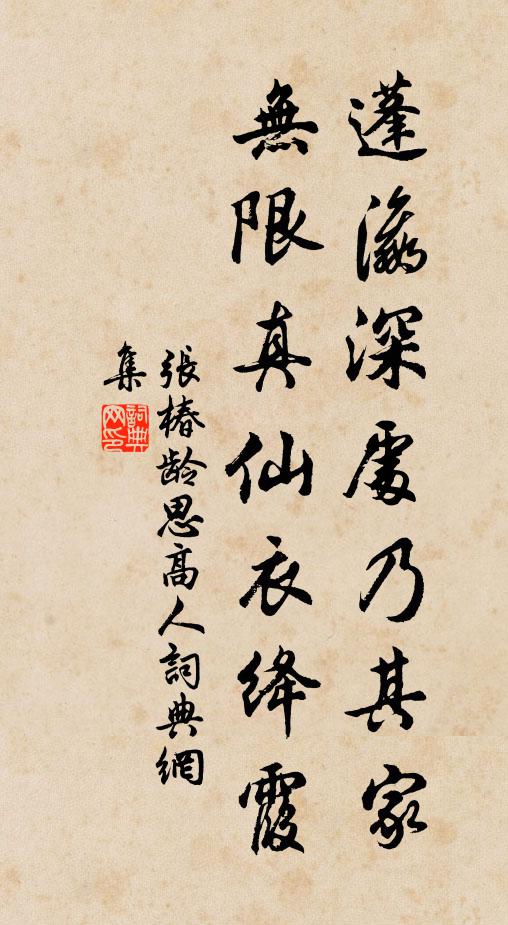 蓬瀛深處乃其家
無限真仙衣絳霞
張椿齡思高人詞典網
集
詞典
网印